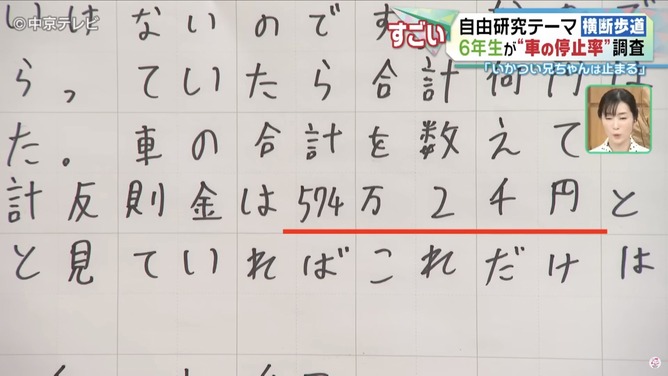 ©中京テレビ
すごい
自由研究テーマ 横断歩道
6年生が“車の停止率”調査
「いかつい兄ちゃんは止まる」
いはないのです
らっていたら合計何円
た。車の合計を数えて
計反則金は574万2千円と
と見ていればこれだけは